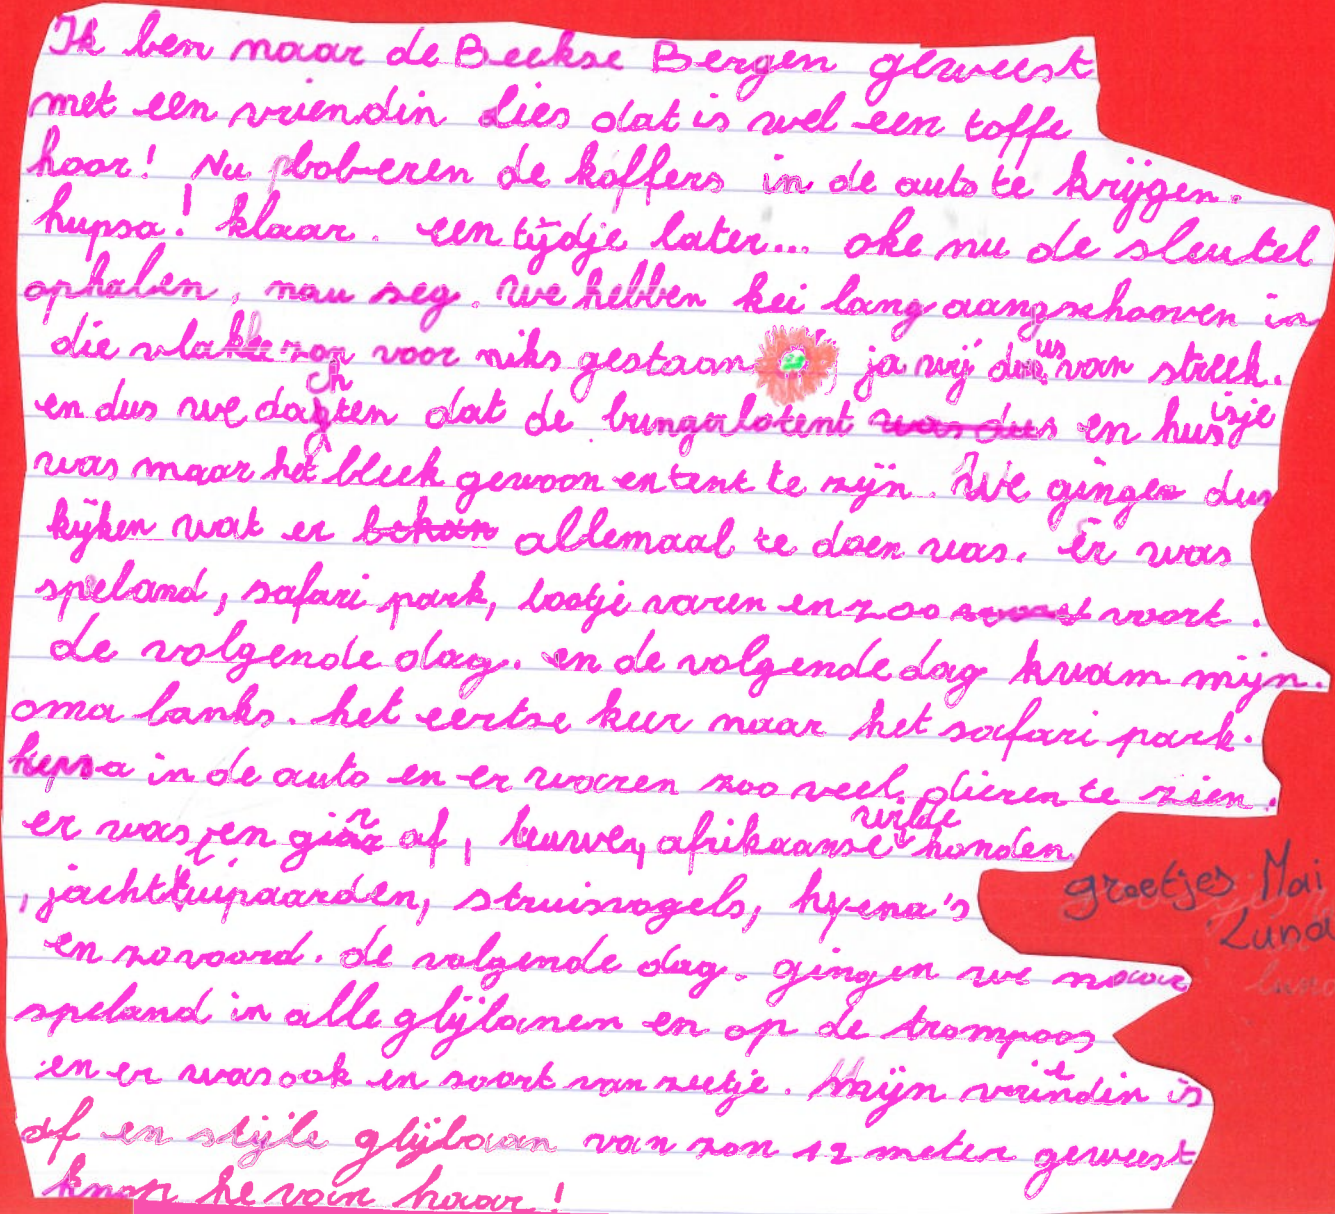 Ik ben naar de Beekse Bergen geweest
met een vriendin Lies dat is wel een toffe
hoor! Nu proberen de koffers in de auto te krijgen.
hupsa! klaar. een tijdje later... oke nu de sleutel
ophalen, nou seg. we hebben kei lang aangschooven in
die vla voor niks gestaan ja wij dus van streek.
en dus we dachten dat de bungalotent was dus en huisje
was maar het bleek gewoon en tent te zijn. We gingen dus
kijken wat er allemaal te doen was. Er was
speland, safari park, bootje varen en zoo voort.
de volgende dag. en de volgende dag kwam mijn.
oma lanks. het eertse keer naar het safari park.
hupsa in de auto en er waren zoo veel dieren te zien.
er was en giraf, leuwen, afrikaanse wilde honden
, jachtluipaarden, struisvogels, hyena's
en zovoord. de volgende dag. gingen we naar
speland in alle glijbanen en op de trompoos
en er was ook en soort van zeetje. Mijn vriendin is
af en stijle glijbaan van zon 12 meter geweest
knap he van haar!
groetjes Mai
Luna